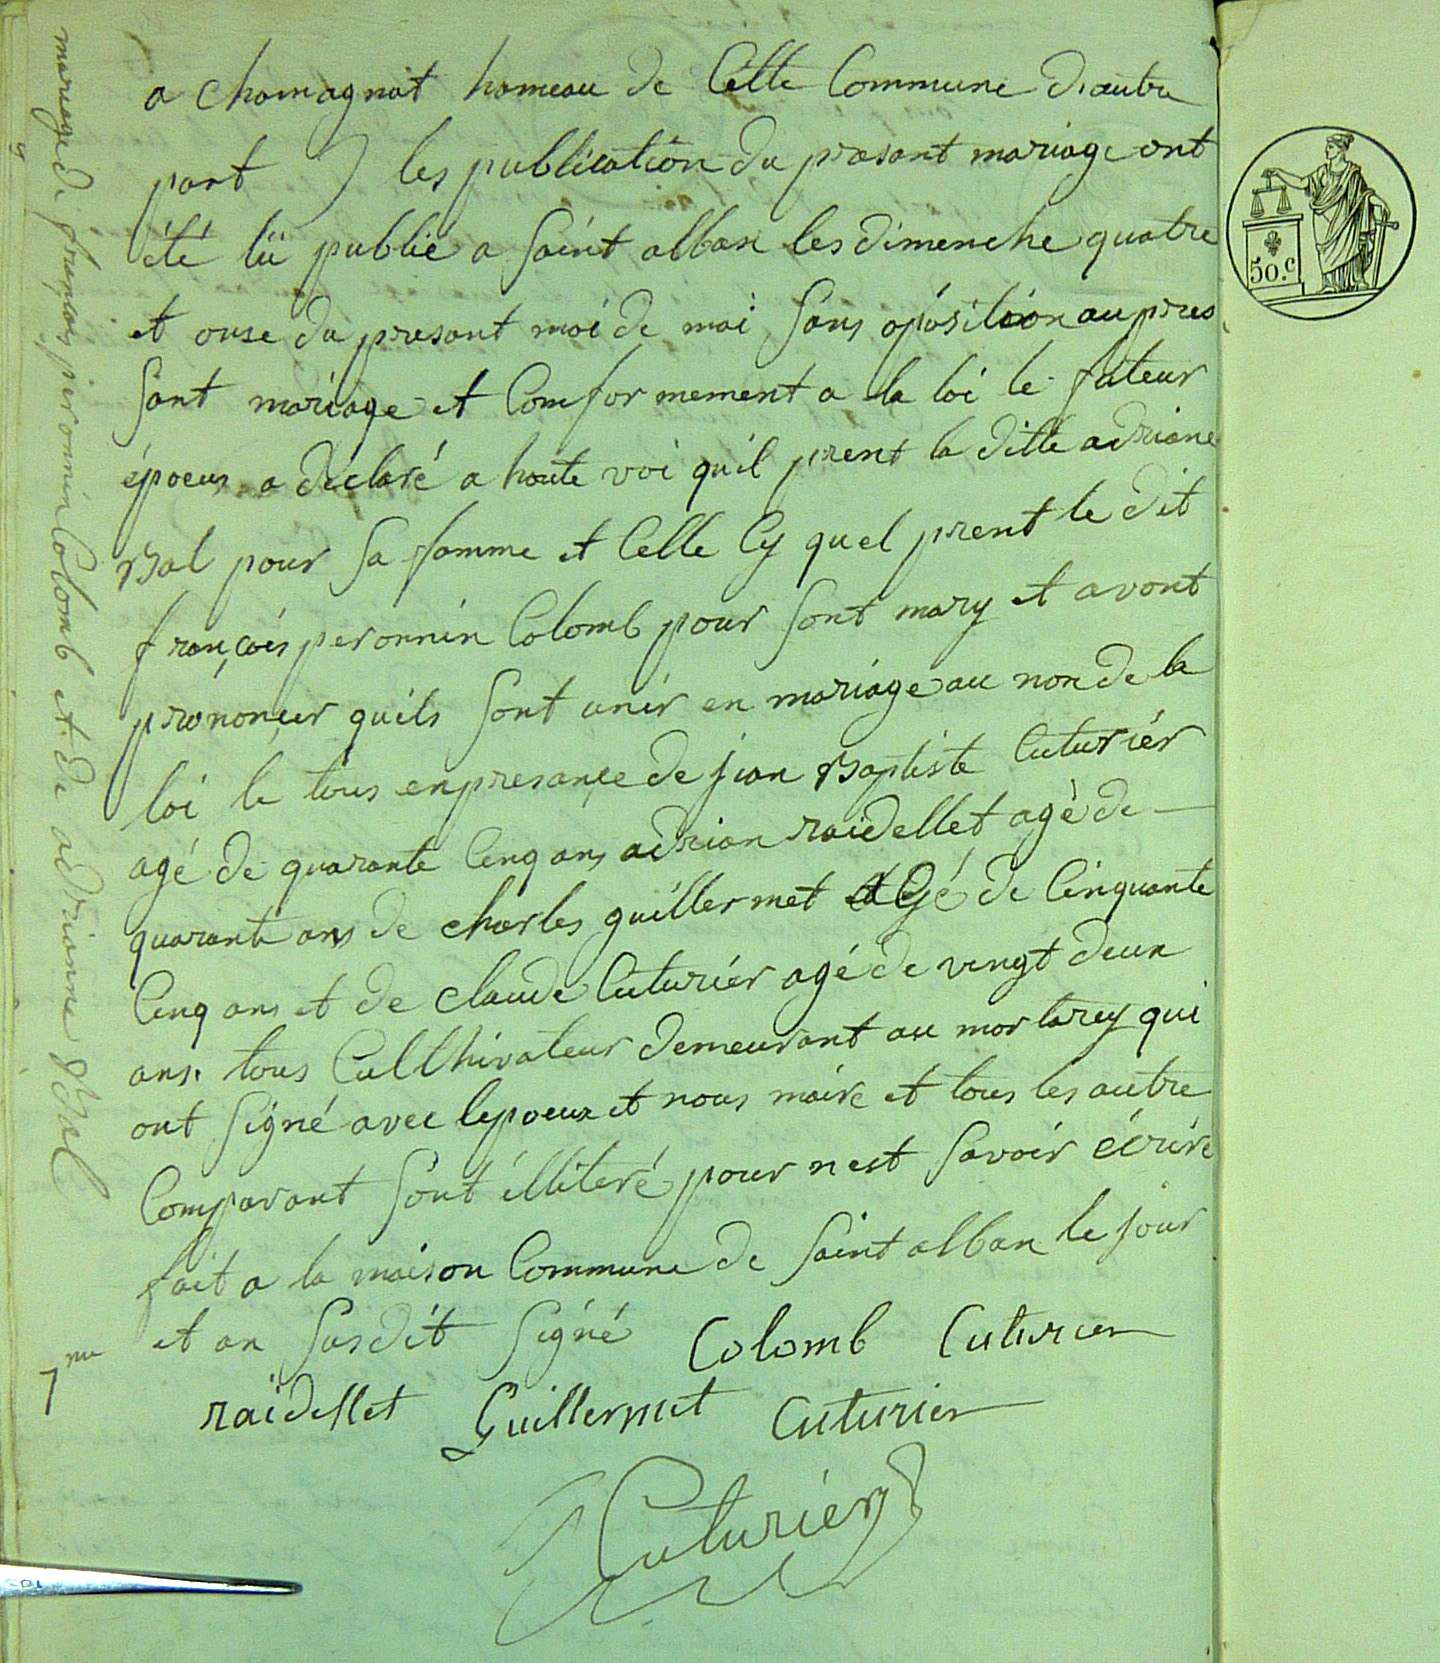 mariage de françois peronnin Colomb et de adrianne Bal
a chamagnat hameau de Cette Commune d'autre
part ) les publication du presant mariage ont
été lü publié a Saint alban les dimenche quatre
et onse du presant moi de mai Sans opósition au pres
Sant mariage et Comformement a la loi le futeur
époeux a déclaré a haute voi qu'il prent la ditte adriane
Bal pour Sa famme et Celle Cy quel prent le dit
françois peronnin Colomb pour Sont mary et avont
prononçer quils Sont unir en mariage au non de la
loi le tous en presançe de jean Baptiste Cuturiér
agé de quarante Cenq ans adrian raidellet agé de
quarante ans de charles guillermet agé de Cinquante
Cenq ans et de claude Cuturiér agé de vengt deux
ans. tous Culthivateur demeurant au mortarey qui
ont Signé avec lepoeux et nous maire et tous les autre
Comparant Sont élliteré pour nest Savoir écrire
fait a la maison Commune de Saint alban le jour
et an Susdit Signé Colomb Cuturier
raidellet Guillermet Cuturier
Cuturiér
7me
50.c